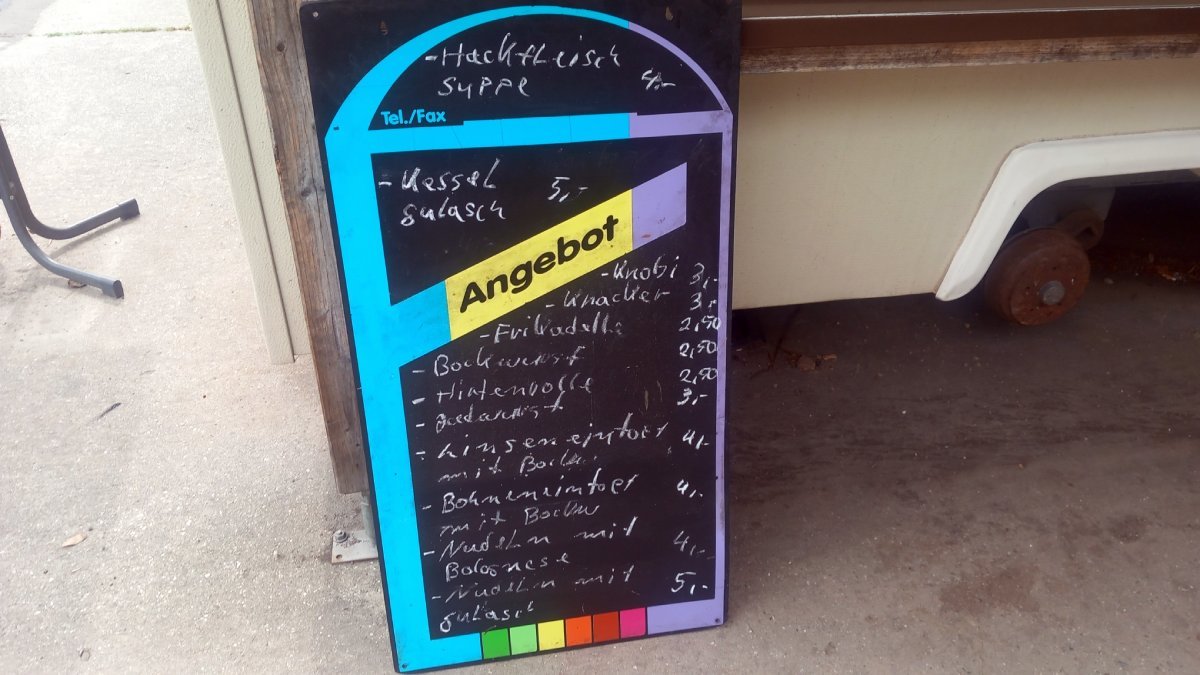 - Hackfleisch
suppe 4,-
Tel./Fax
- Kessel
gulasch 5,-
Angebot
- Knobi 3,-
- Knacker 3,-
- Frikadelle 2,50
- Bockwurst 2,50
- 2,50
- 3,-
- Linseneintopf 4,-
mit Bockw.
- Bohneneintopf 4,-
mit Bockw
- Nudeln mit
Bolognese 4,-
- Nudeln mit 5,-
gulasch